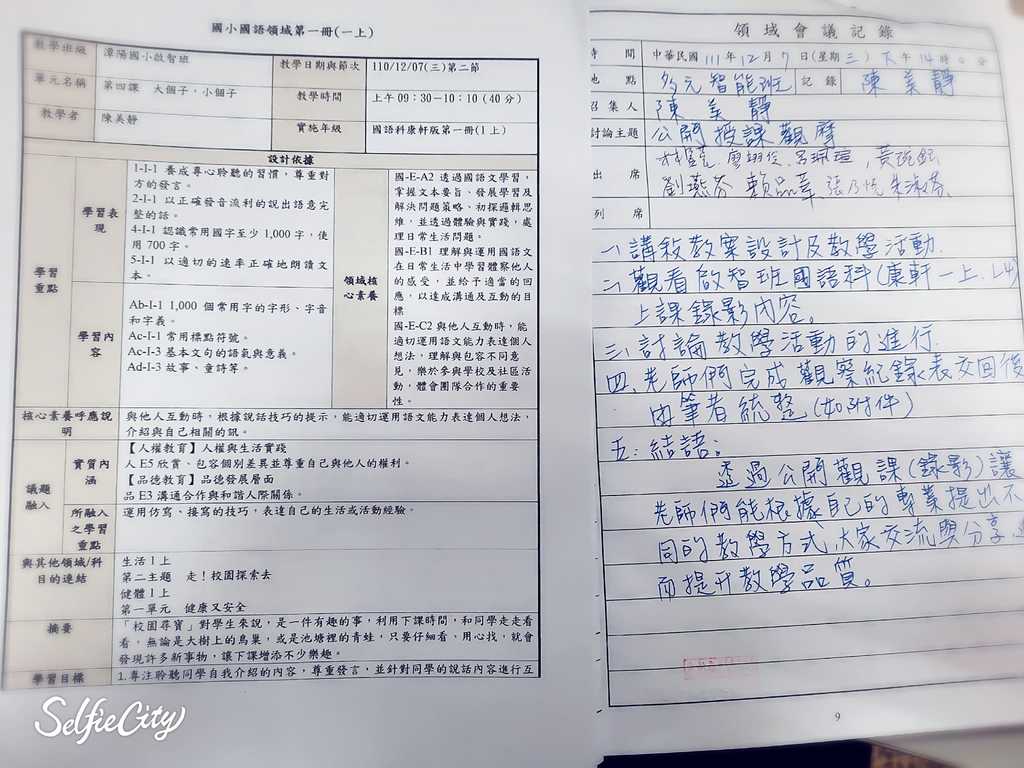 國小國語領域第一冊(一上)
教學班級 潭陽國小啟智班 教學日期與節次 110/12/07(三)第二節
單元名稱 第四課 大個子，小個子 教學時間 上午 09：30－10：10 (40 分)
教學者 陳美靜 實施年級 國語科康軒版第一冊(1上)
設計依據
學習重點
學習表現
1-I-1 養成專心聆聽的習慣，尊重對方的發言。
2-I-1 以正確發音流利的說出語意完整的話。
4-I-1 認識常用國字至少 1,000 字，使用 700 字。
5-I-1 以適切的速率正確地朗讀文本。
學習內容
Ab-I-1 1,000 個常用字的字形、字音和字義。
Ac-I-1 常用標點符號。
Ac-I-3 基本文句的語氣與意義。
Ad-I-3 故事、童詩等。
領域核心素養
國-E-A2 透過國語文學習，
掌握文本要旨、發展學習及
解決問題策略、初探邏輯思
維，並透過體驗與實踐，處
理日常生活問題。
國-E-B1 理解與運用國語文
在日常生活中學習體察他人
的感受，並給予適當的回
應，以達成溝通及互動的目
標
國-E-C2 與他人互動時，能
適切運用語文能力表達個人
想法，理解與包容不同意
見，樂於參與學校及社區活
動，體會團隊合作的重要
性。
核心素養呼應說明 與他人互動時，根據說話技巧的提示，能適切運用語文能力表達個人想法，
介紹與自己相關的訊。
議題融入
實質內涵
【人權教育】人權與生活實踐
人 E5 欣賞、包容個別差異並尊重自己與他人的權利。
【品德教育】品德發展層面
品 E3 溝通合作與和諧人際關係。
所融入之學習重點 運用仿寫、接寫的技巧，表達自己的生活或活動經驗。
與其他領域/科目的連結
生活 1 上
第二主題 走！校園探索去
健體 1 上
第一單元 健康又安全
摘要
「校園尋寶」對學生來說，是一件有趣的事，利用下課時間，和同學走走看
看，無論是大樹上的鳥巢，或是池塘裡的青蛙，只要仔細看、用心找，就會
發現許多新事物，讓下課增添不少樂趣。
學習目標 1.專注聆聽同學自我介紹的內容，尊重發言，並針對同學的說話內容進行互
SelfieCity
領域會議記錄
時 間 中華民國 111 年 12 月 7 日(星期 三) 下午 14 時 0 分
地 點 多元智能班 記錄 陳美靜
召集人 陳美靜
討論主題 公開授課觀摩
出 席
劉燕芬 賴品華
列 席
一、講敘教案設計及教學活動.
二、觀看啟智班國語科(康軒一上.L4)
上課錄影內容。
三、討論教學活動的進行.
四、老師們完成觀察紀錄表交回後
由筆者統整(如附件)
五：結語：
透過公開觀課(錄影)讓
老師們能根據自己的專業提出不
同的教學方式,大家交流與分享,
而提升教學品質。
9